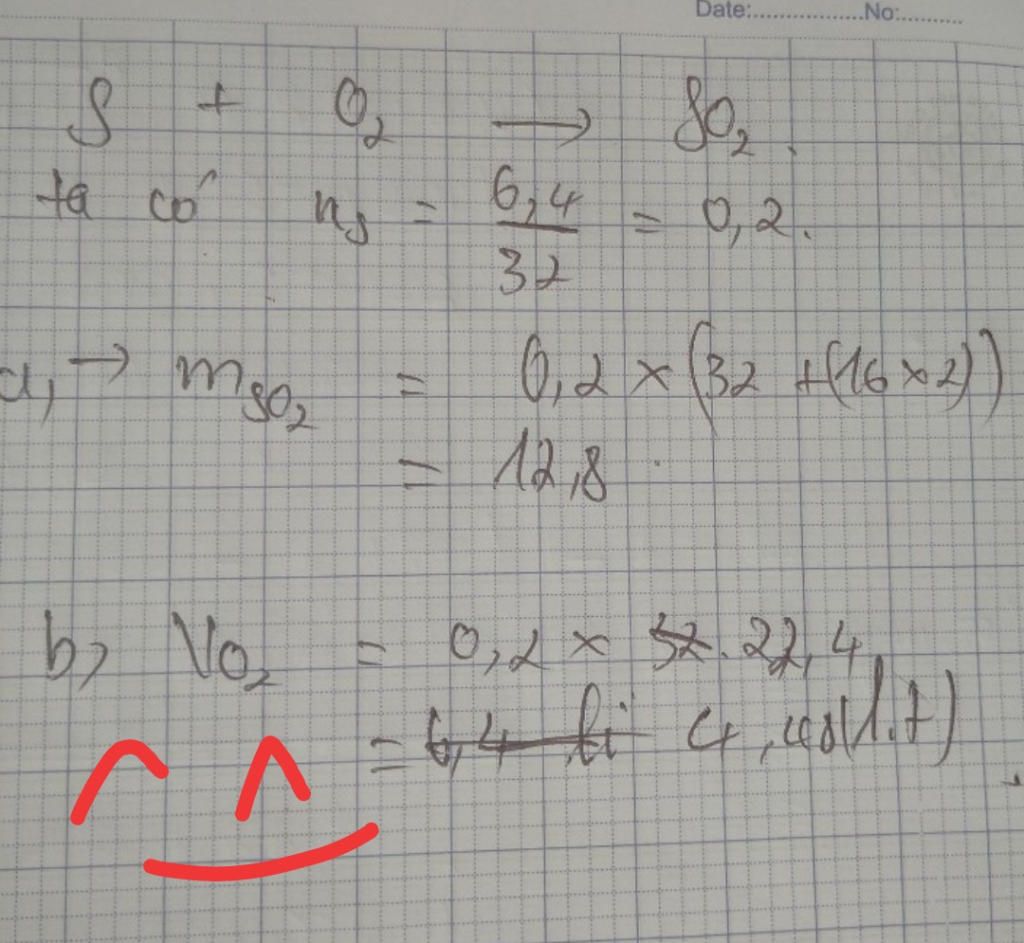 Date:..................No:..........
S + O₂ → SO₂.
ta có nₛ = 6,4/32 = 0,2.
a, → m_SO₂ = 0,2 × (32 + (16 × 2))
= 12,8
b, V_O₂ = 0,2 × 32. 22,4
= 6,4 li 4,48 (l.t)